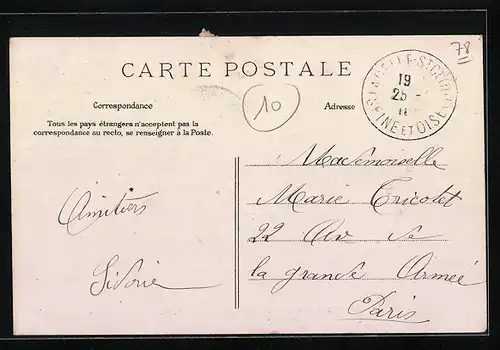 78
CARTE POSTALE
LA CELLE-ST CLOUD
19
25
SEINE ET OISE
10
Correspondance
Adresse
Tous les pays étrangers n'acceptent pas la
correspondance au recto, se renseigner à la Poste.
Mademoiselle
Marie Tricotet
22 Av de
la grande Armée
Paris
Amitiés
Sidonie